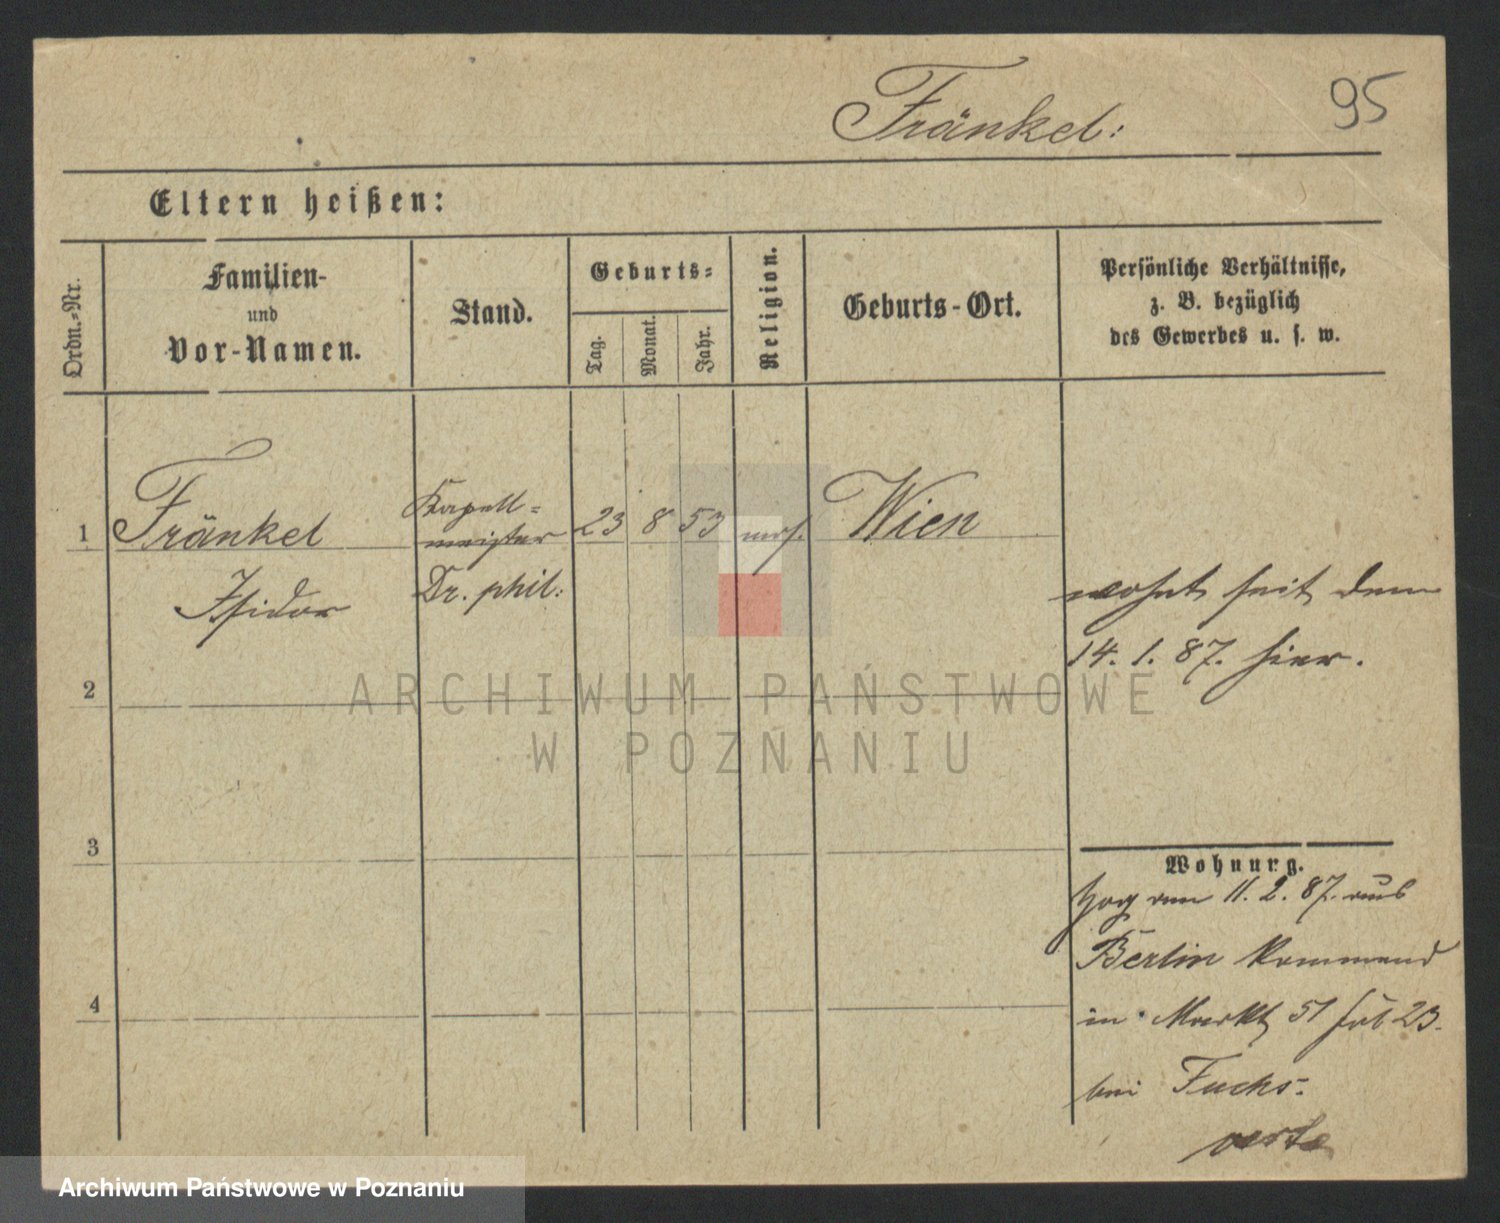 Fränkel:
95
Eltern heißen:
Ordn.-Nr.
Familien-
und
Vor-Namen.
Stand.
Geburts-
Tag.
Monat.
Jahr.
Religion.
Geburts-Ort.
Persönliche Verhältnisse,
z. B. bezüglich
des Gewerbes u. s. w.
1
Fränkel
Isidor
Kapell-
meister
Dr. phil:
23
8
53
mos.
Wien
wohnt seit dem
14. 1. 87. hier.
2
ARCHIWUM PAŃSTWOWE
W POZNANIU
3
Wohnung.
zog am 11. 2. 87. aus
Berlin kommend
in Markt 51 23.
bei Fuchs.
4
Archiwum Państwowe w Poznaniu